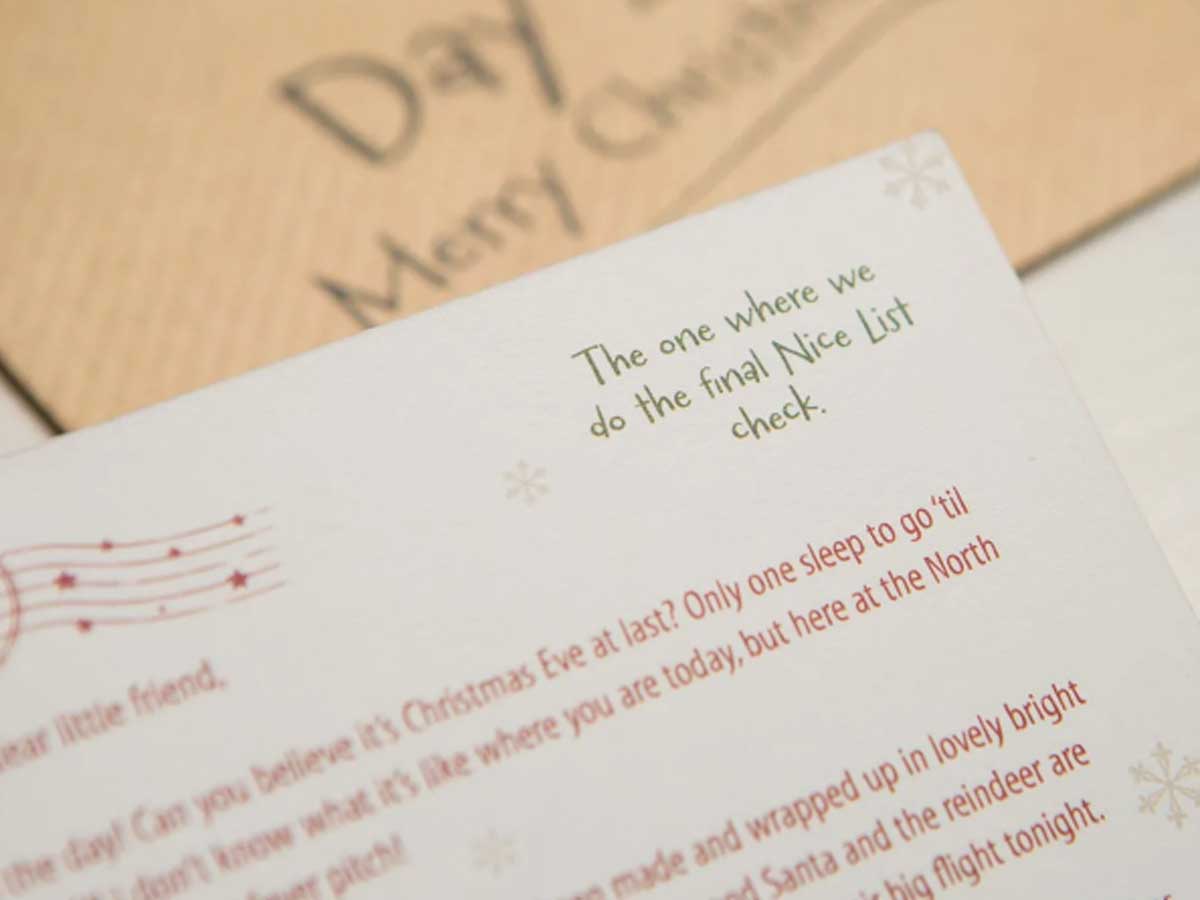 Day
Merry Christm
The one where we
do the final Nice List
check.
little friend,
the day! Can you believe it's Christmas Eve at last? Only one sleep to go 'til
I don't know what it's like where you are today, but here at the North
fever pitch!
made and wrapped up in lovely bright
Santa and the reindeer are
big flight tonight.